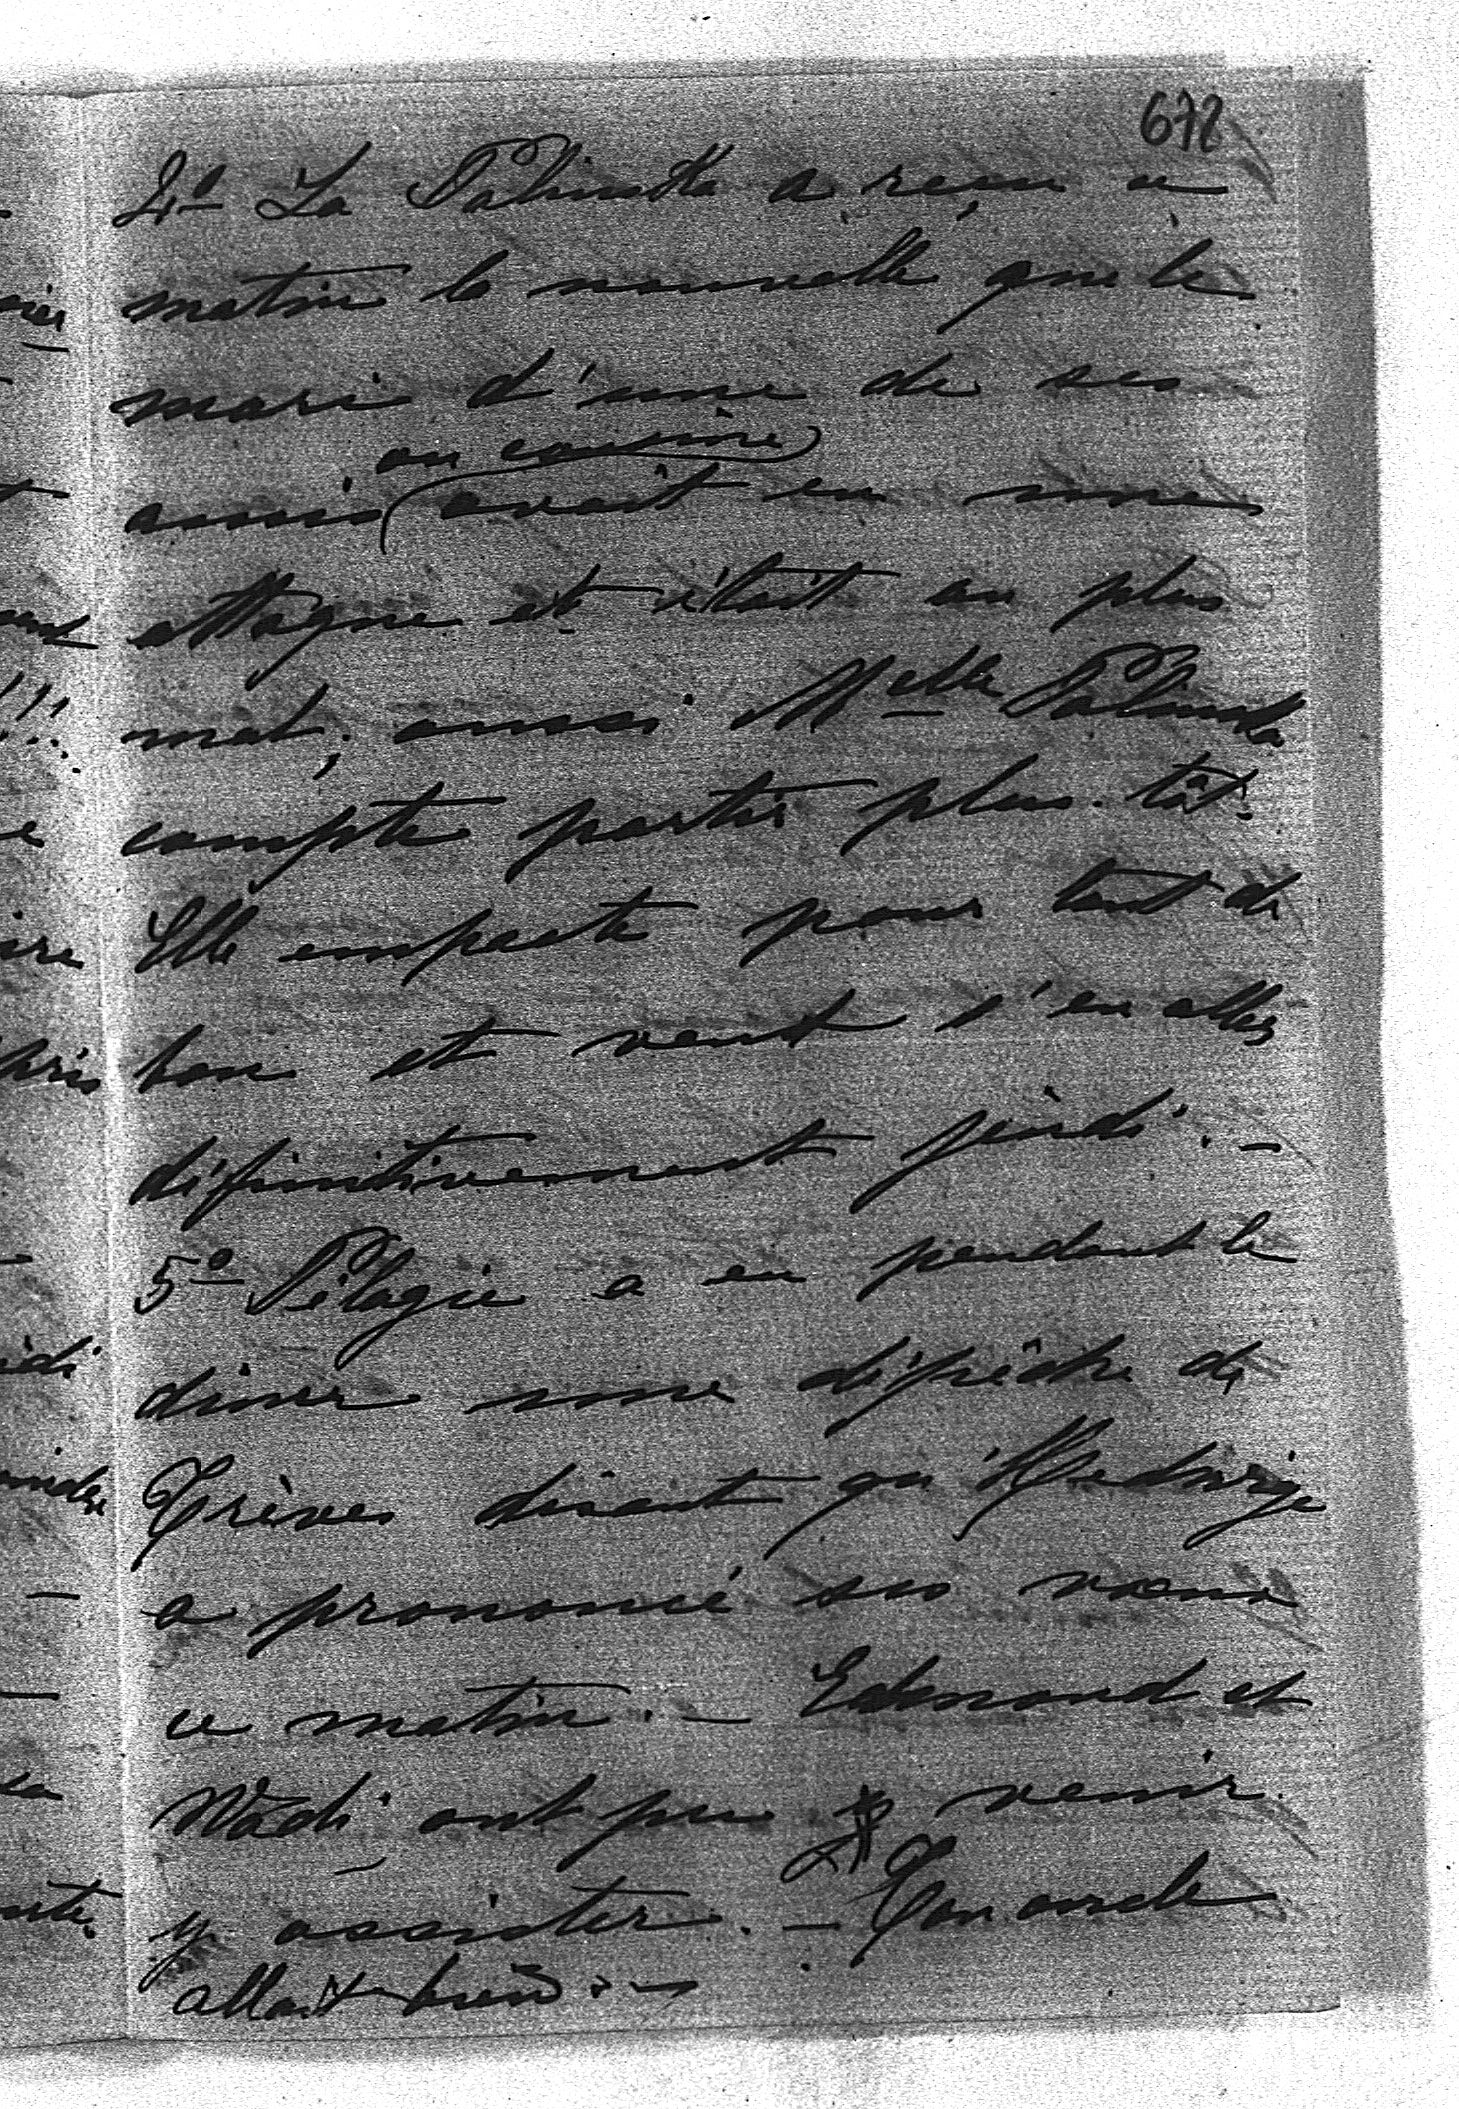 672
4º La Palinska a reçu ce
matin la nouvelle que le
mari d'une de ses
ou cousine
amies avait eu une
attaque et était au plus
mal; aussi Melle Palinska
compte partir plus tôt.
Elle empacte pour tout de
bon et veut s'en aller
définitivement jeudi. —
5º Pélagie a eu pendant le
dîner une dépêche de
Trèves disant qu'Hedwige
a prononcé ses vœux
ce matin. — Edmond et
Wādi ont pu venir
y assister. — Ton oncle
allait bien. —